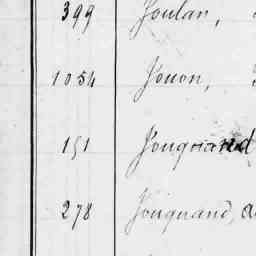 399 Joulan,
1054 Jouon,
151 Jouquand
278 Jouquand, a